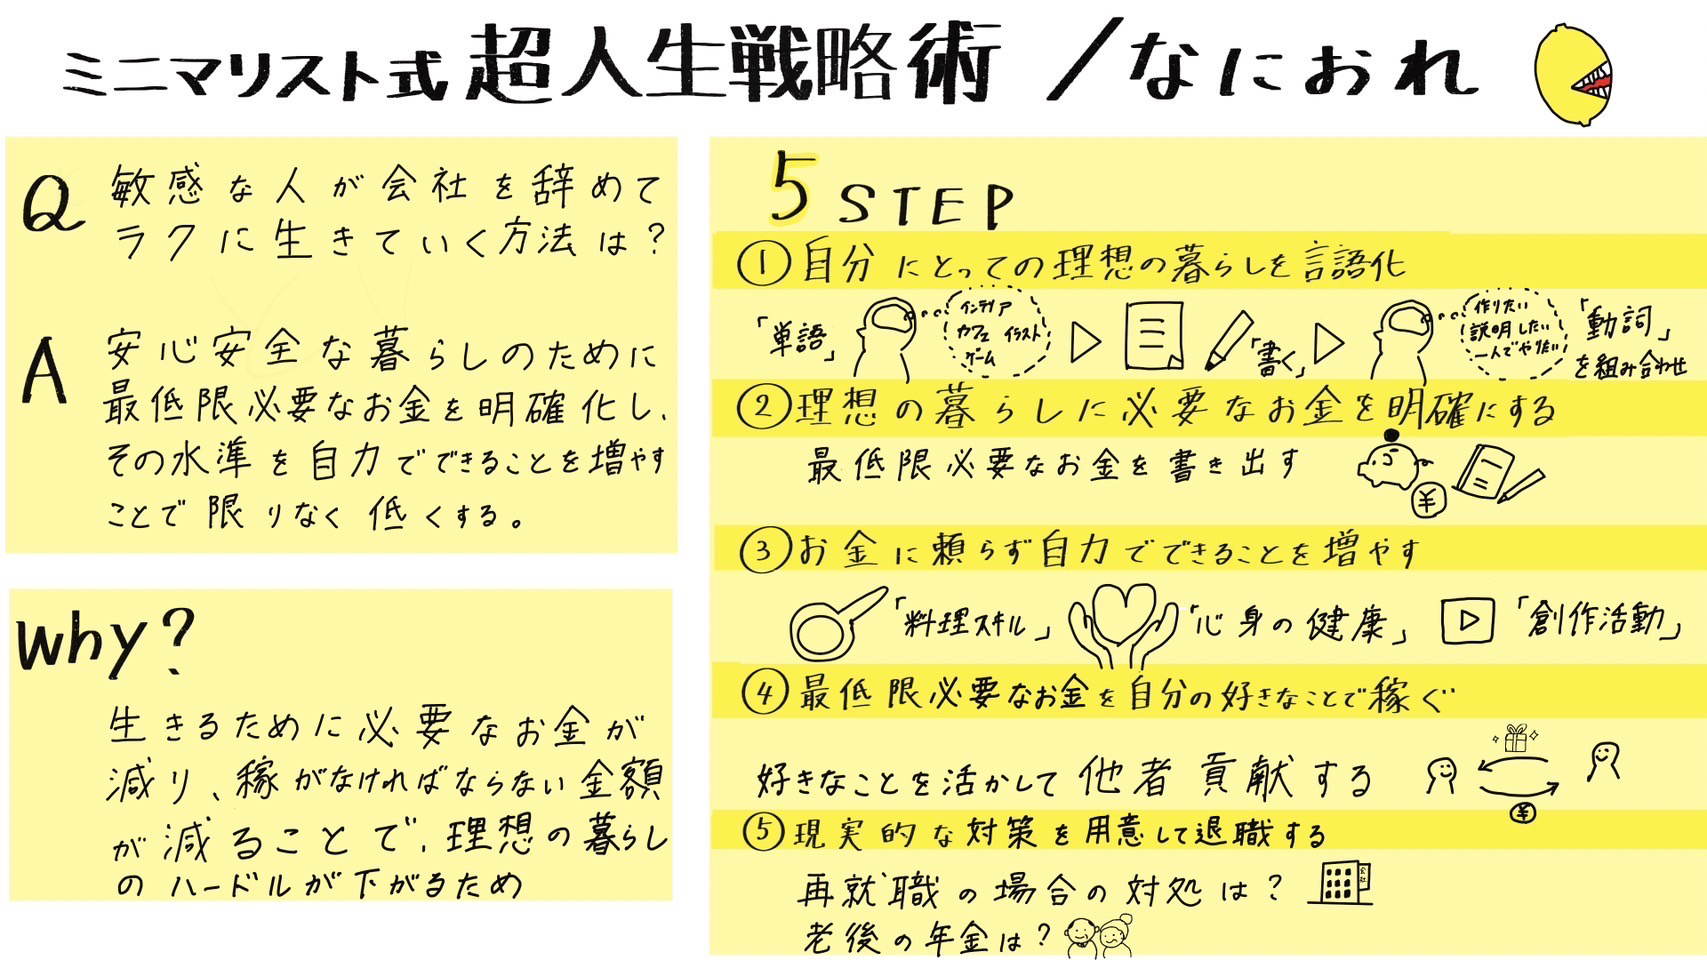 ミニマリスト式 超人生戦略術 / なにおれ
Q
敏感な人が会社を辞めて
ラクに生きていく方法は?
A
安心安全な暮らしのために
最低限必要なお金を明確化し、
その水準を自力でできることを増やす
ことで限りなく低くする。
Why?
生きるために必要なお金が
減り、稼がなければならない金額
が減ることで、理想の暮らし
のハードルが下がるため
5 STEP
①自分にとっての理想の暮らしを言語化
「単語」
インテリア
カフェ イラスト
ゲーム
「書く」
作りたい
説明したい
一人でやりたい
「動詞」
を組み合わせ
②理想の暮らしに必要なお金を明確にする
最低限必要なお金を書き出す
¥
③お金に頼らず自力でできることを増やす
「料理スキル」 「心身の健康」 「創作活動」
④最低限必要なお金を自分の好きなことで稼ぐ
好きなことを活かして他者貢献する
¥
⑤現実的な対策を用意して退職する
再就職の場合の対処は?
会社
老後の年金は?